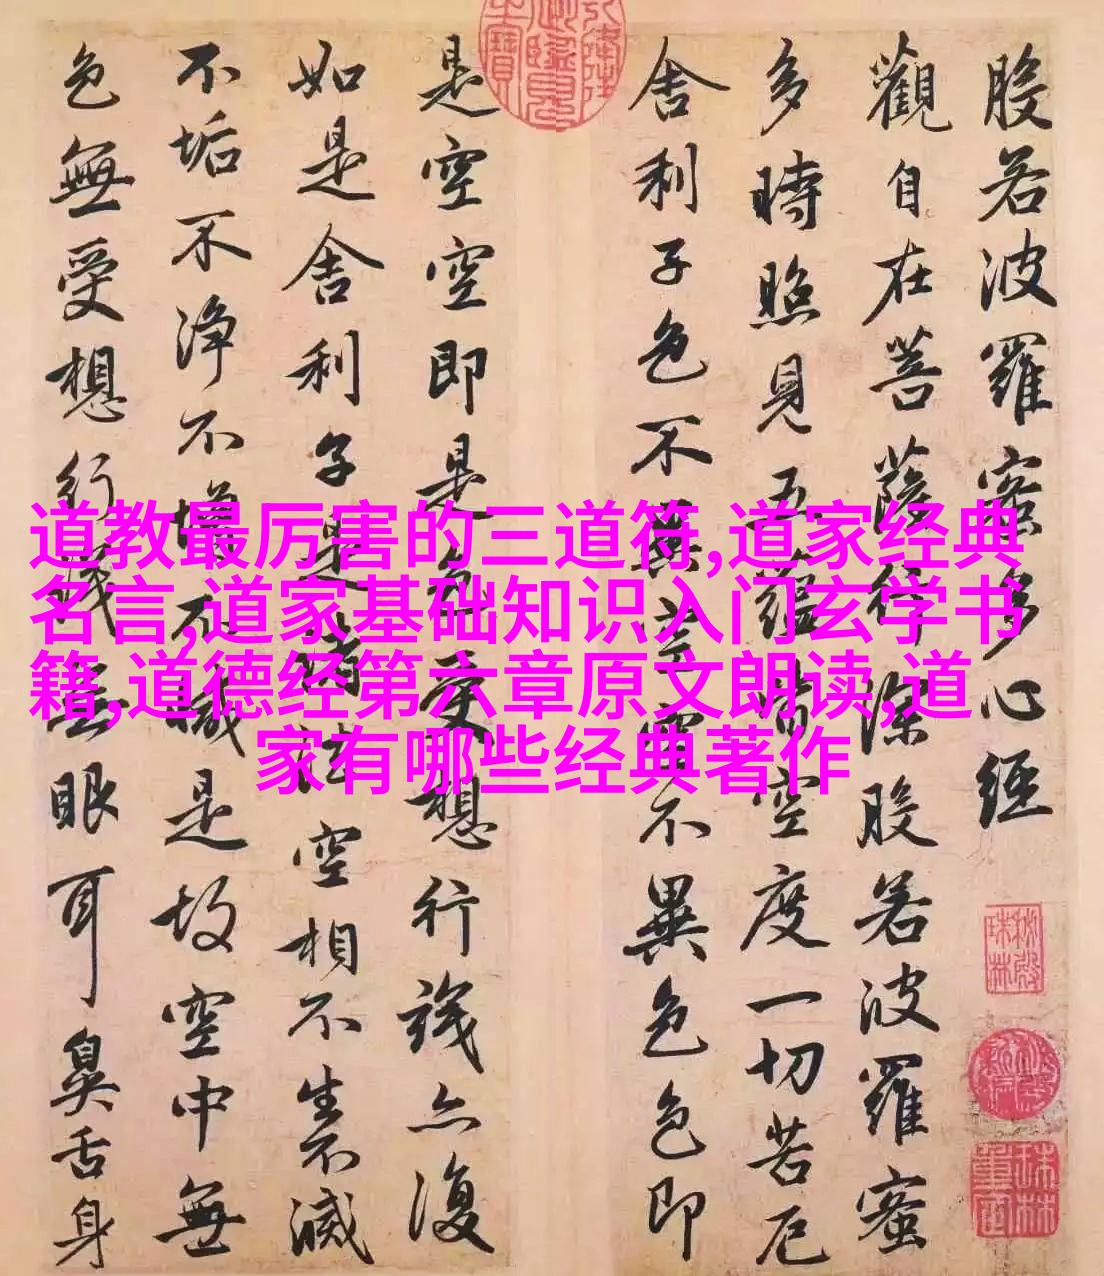 般若波羅蜜多心經
觀自在菩薩行深般若波羅蜜
多時照見五蘊皆空度一切苦厄
舍利子色不異空空不異色色即
是空空即是色受想行識亦復
如是舍利子是諸法空相不生不滅
不垢不淨不增不減是故空中無
色無受想行識無眼耳鼻舌身
道教最厉害的三道符,道家经典
名言,道家基础知识入门玄学书
籍,道德经第六章原文朗读,道
家有哪些经典著作